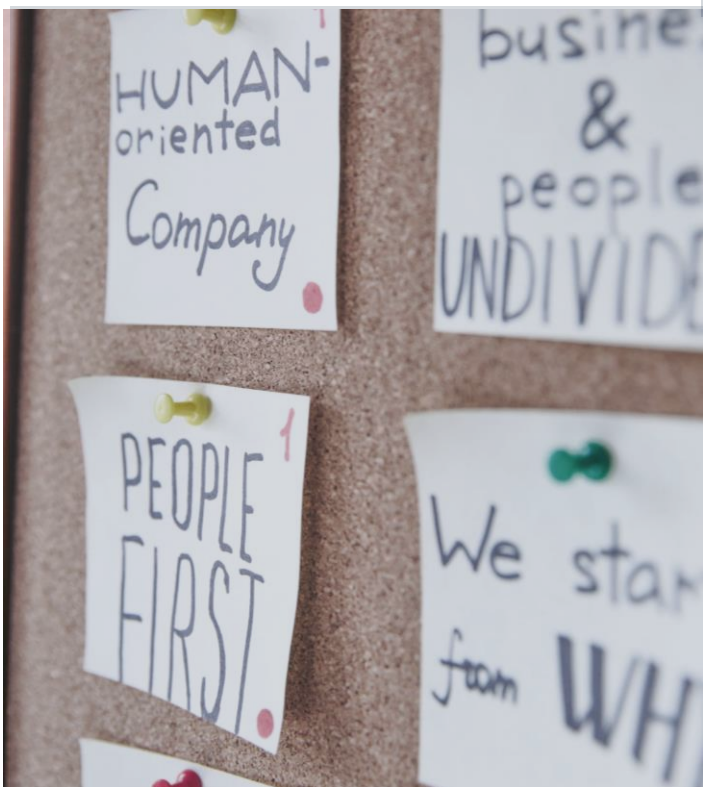 HUMAN-
oriented
Company
busine
&
people
UNDIVIDE
PEOPLE
FIRST
1
We star
from WH